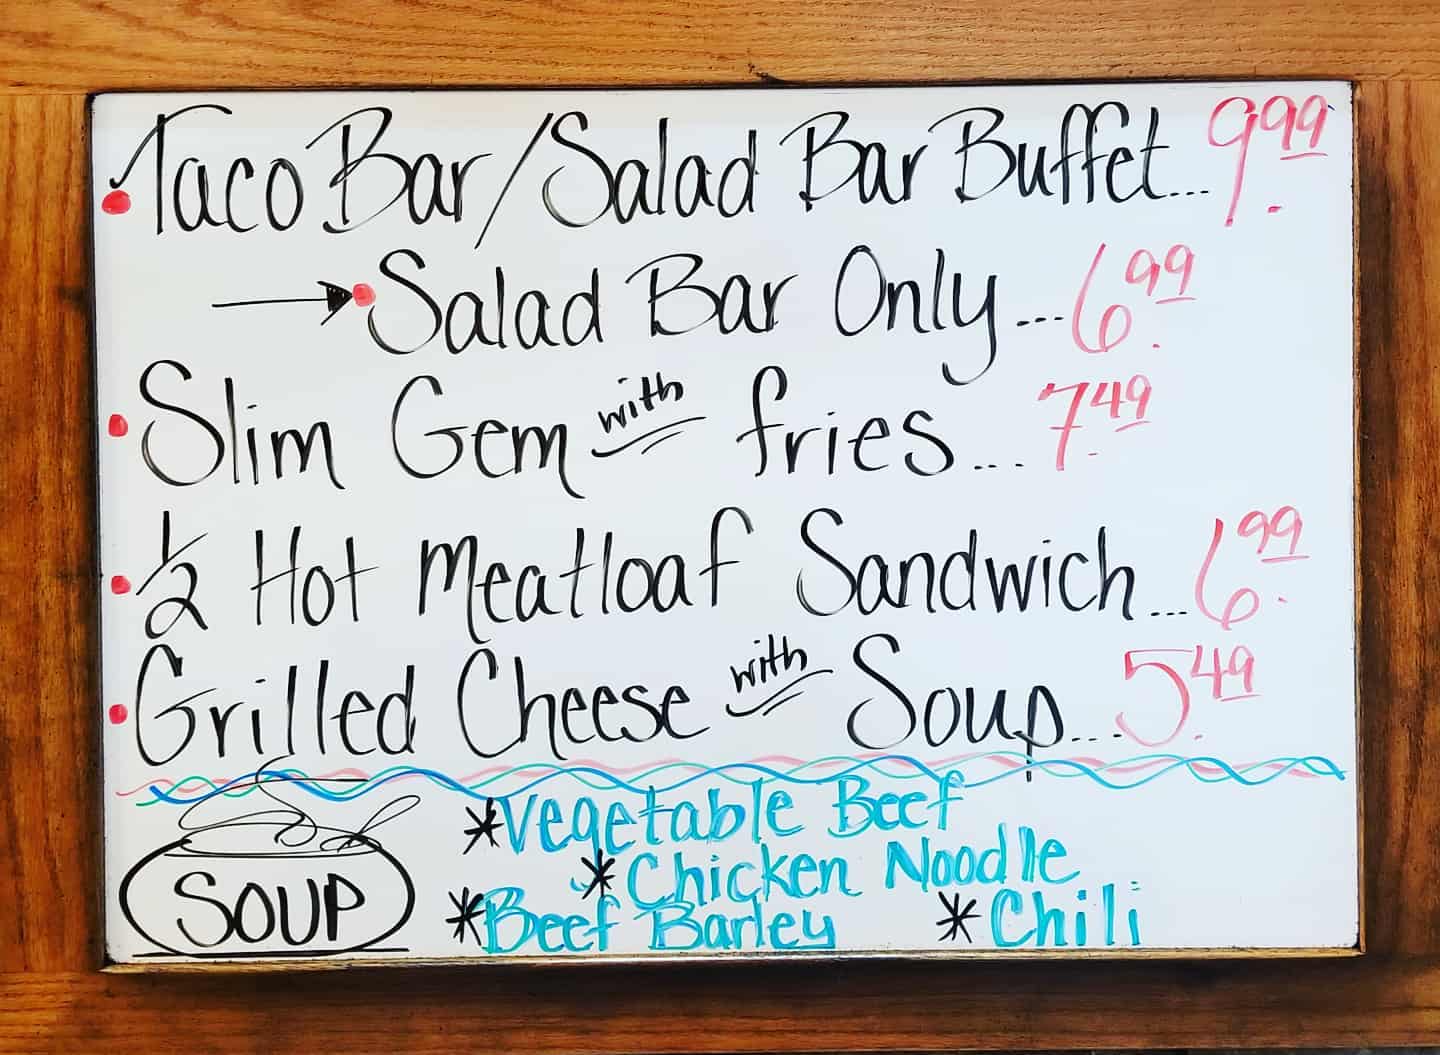 Taco Bar/Salad Bar Buffet... 9.99
Salad Bar Only... 6.99
Slim Gem with fries... 7.49
1/2 Hot Meatloaf Sandwich... 6.99
Grilled Cheese with Soup... 5.49
SOUP
*Vegetable Beef
*Chicken Noodle
*Beef Barley *Chili